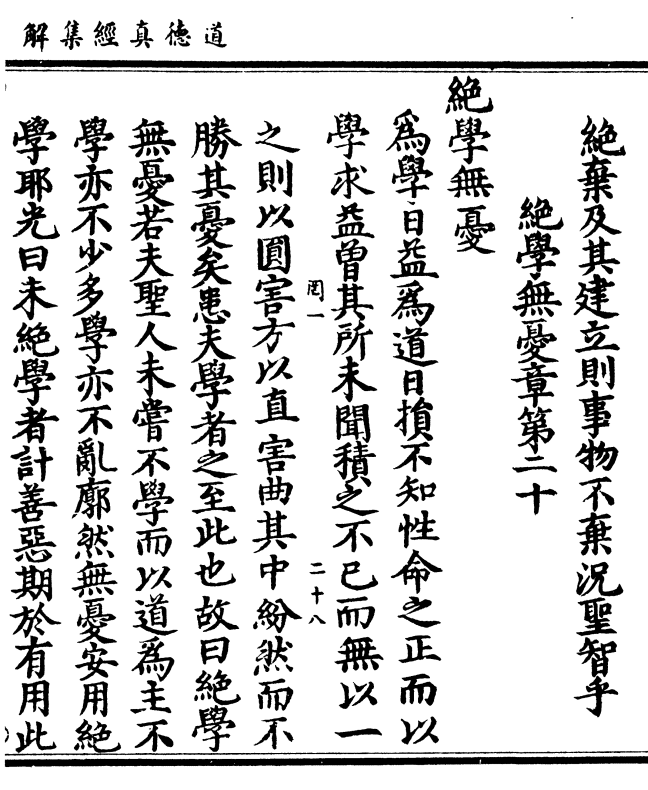 道德真經集解
絕棄及其建立則事物不棄況聖智乎
絕學無憂章第二十
絕學無憂
為學日益為道日損不知性命之正而以
學求益曾其所未聞積之不已而無以一
罔一
二十八
之則以圓害方以直害曲其中紛然而不
勝其憂矣患夫學者之至此也故曰絕學
無憂若夫聖人未嘗不學而以道為主不
學亦不少多學亦不亂廓然無憂安用絕
學耶光曰未絕學者計善惡期於有用此